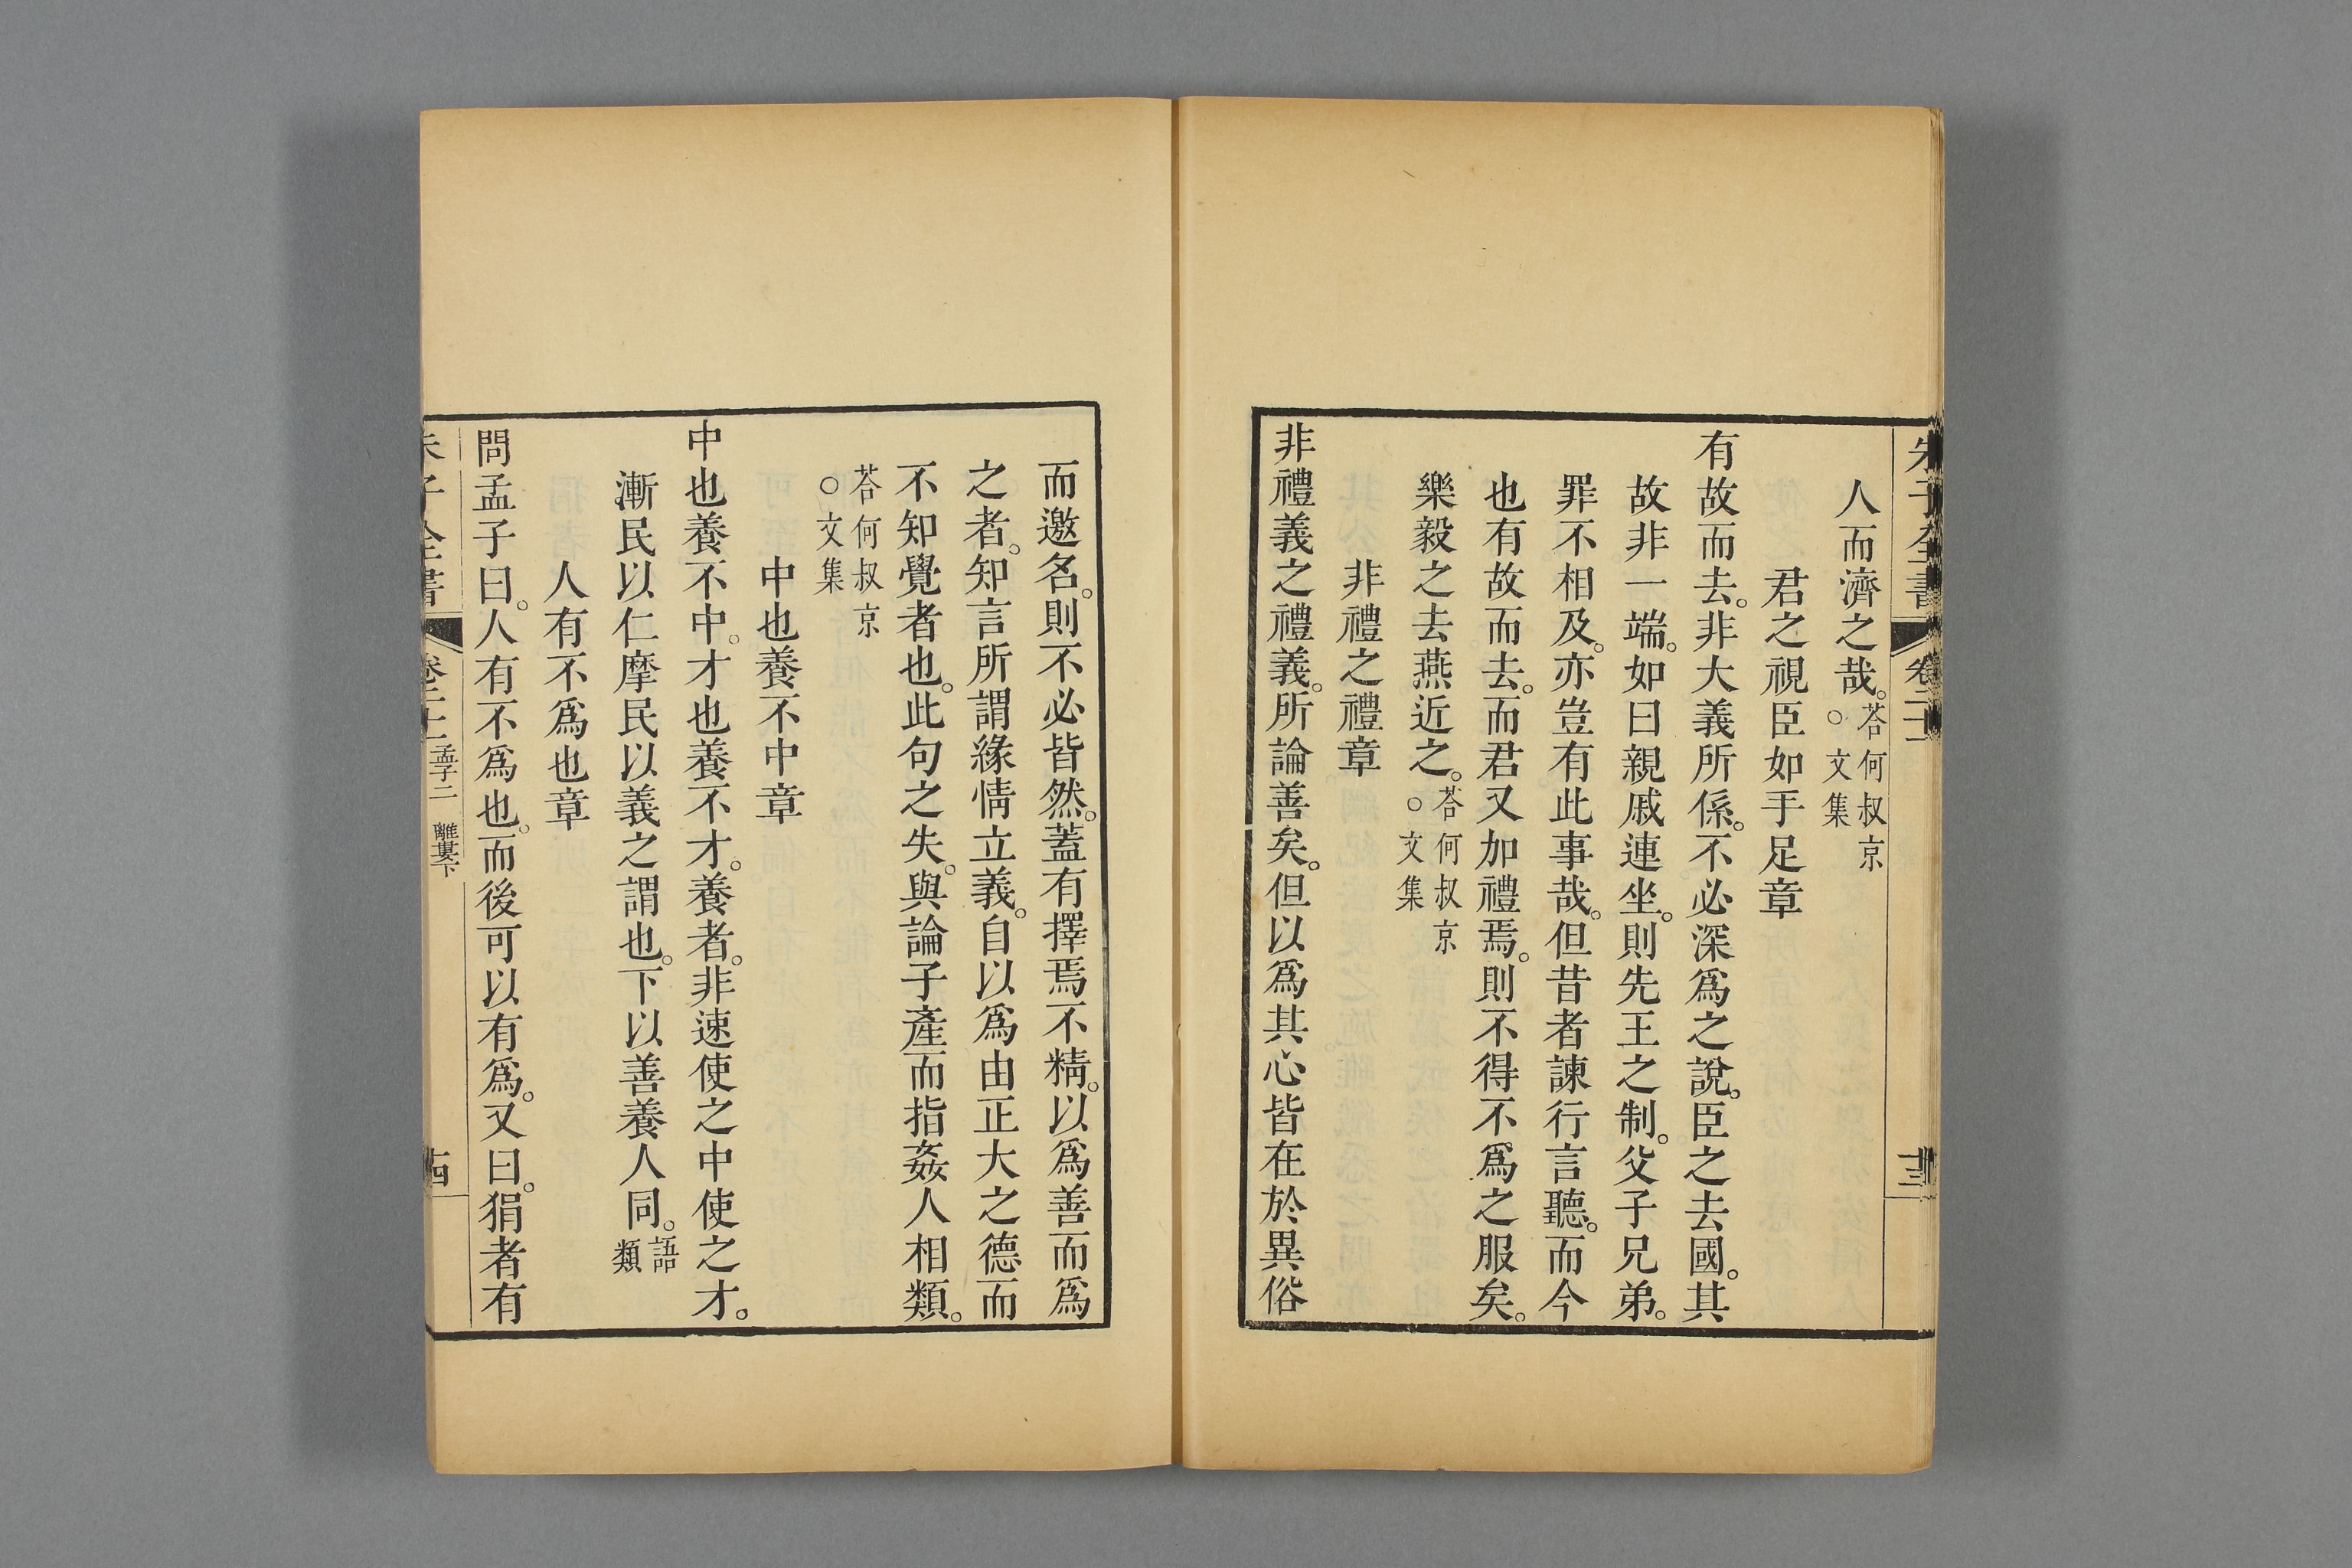 朱子全書 卷二十一 十三
人而濟之哉。答何叔京○文集
君之視臣如手足章
有故而去。非大義所係。不必深爲之說。臣之去國。其
故非一端。如曰親戚連坐。則先王之制。父子兄弟。
罪不相及。亦豈有此事哉。但昔者諫行言聽。而今
也有故而去。而君又加禮焉。則不得不爲之服矣。
樂毅之去燕近之。答何叔京○文集
非禮之禮章
非禮義之禮義。所論善矣。但以爲其心皆在於異俗
而邀名。則不必皆然。蓋有擇焉不精。以爲善而爲
之者。知言所謂緣情立義。自以爲由正大之德而
不知覺者也。此句之失。與論子產而指姦人相類。
答何叔京○文集
中也養不中章
中也養不中。才也養不才。養者。非速使之中使之才。
漸民以仁摩民以義之謂也。下以善養人同。語類
人有不爲也章
問孟子曰。人有不爲也。而後可以有爲。又曰。狷者有
朱子全書 卷二十一 孟子二 離婁下 十四